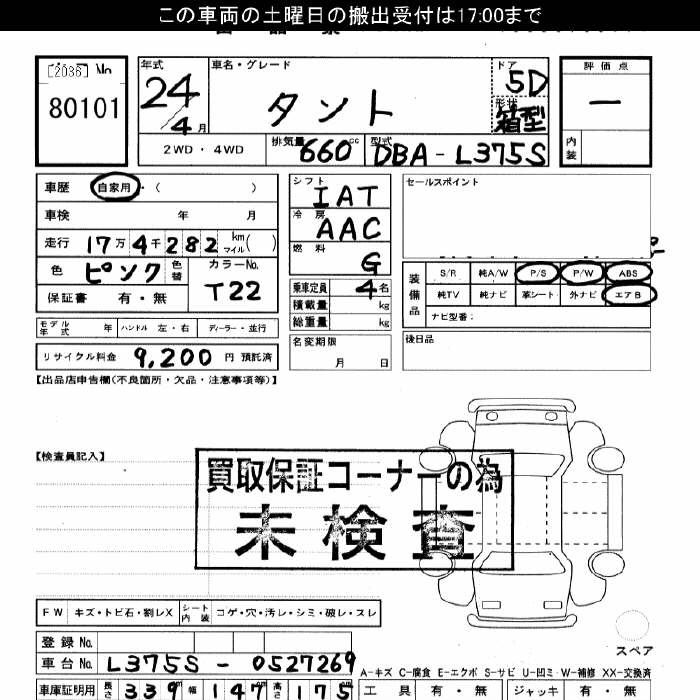 この車両の土曜日の搬出受付は17:00まで
[2036] No
80101
年式 24 / 4 月
車名・グレード タント
ドア 5D
形状 箱型
評価点 —
内装
2WD・4WD
排気量 660 cc
型式 DBA-L375S
車歴 自家用・( )
車検 年 月
走行 17万4千282 km マイル( )
色 ピンク 色替
カラーNo. T22
保証書 有・無
モデル年式 年 ハンドル 左・右 ディーラー・並行
リサイクル料金 9,200 円 預託済
シフト IAT
冷房 AAC
燃料 G
乗車定員 4 名
積載量 kg
総重量 kg
名変期限 月 日
セールスポイント
装備品
S/R 純A/W P/S P/W ABS
純TV 純ナビ 革シート 外ナビ エアB
ナビ型番:
後日品
【出品店申告欄(不良箇所・欠品・注意事項等)】
【検査員記入】
買取保証コーナーの為
未検査
FW キズ・トビ石・割レX シート内装 コゲ・穴・汚レ・シミ・破レ・スレ
スペア
登録No.
車台No. L375S-0527269
A-キズ C-腐食 E-エクボ S-サビ U-凹ミ W-補修 XX-交換済
車庫証明用 長さ 339 幅 147 高さ 175
工具 有・無 ジャッキ 有・無